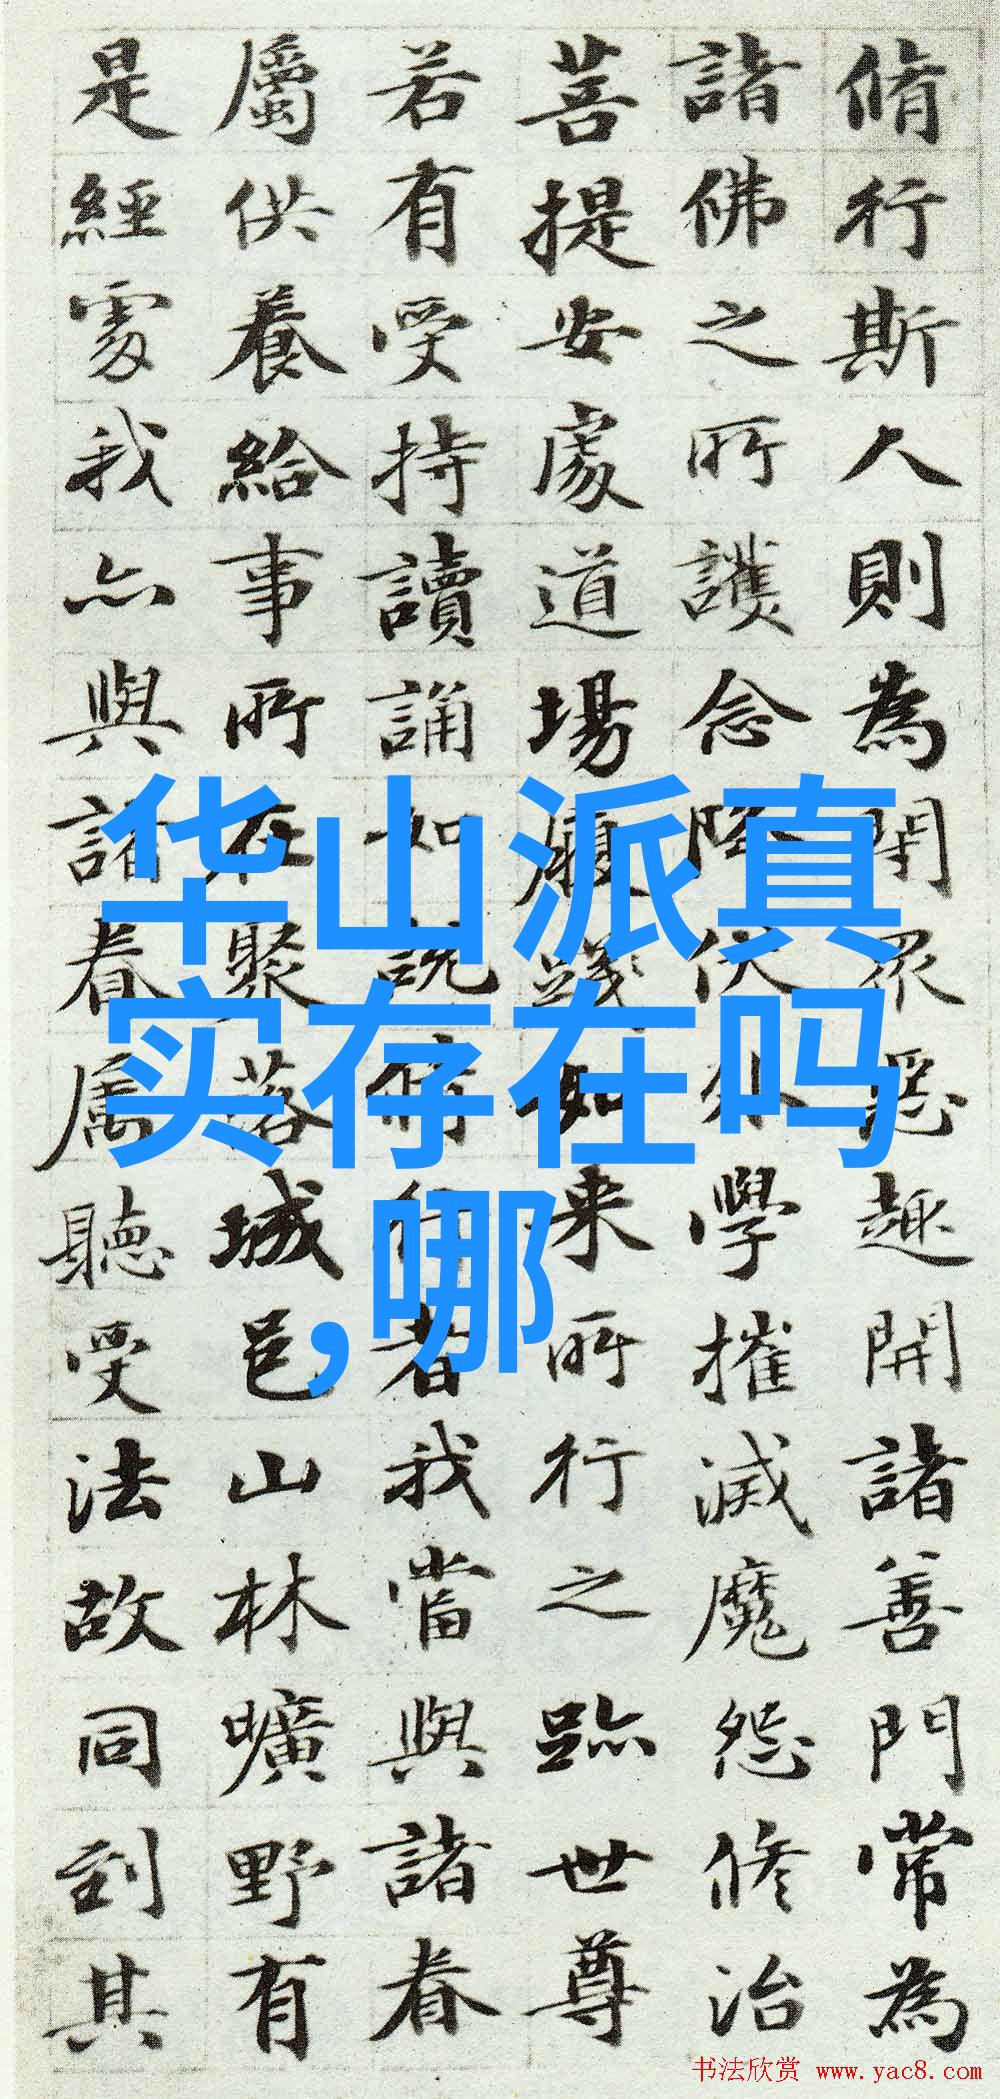 脩行斯人則為閇眾惡趣開諸善門常為
諸佛之所護念降伏外學摧滅魔怨修治
菩提安處道場履踐如来所行之跡世尊
若有受持讀誦如說修行者我當與諸眷
屬供養給事所在聚落城邑山林曠野有
是經處我亦與諸眷属聽受法故同到其
华山派真
实存在吗
,哪
书法欣赏 www.yac8.com